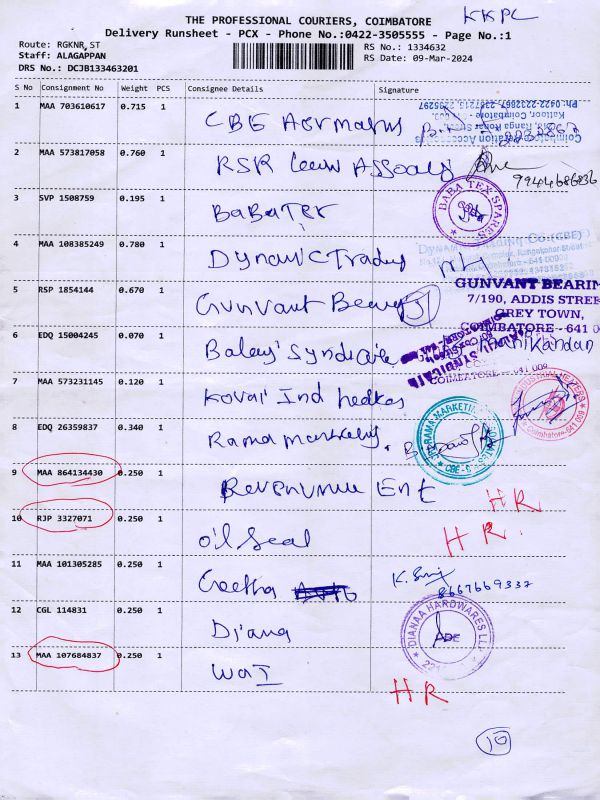 KKPC
THE PROFESSIONAL COURIERS, COIMBATORE
Delivery Runsheet - PCX - Phone No.:0422-3505555 - Page No.:1
Route: RGKNR,ST
RS No.: 1334632
Staff: ALAGAPPAN
RS Date: 09-Mar-2024
DRS No.: DCJB133463201
S No Consignment No Weight PCS Consignee Details Signature
1 MAA 703610617 0.715 1 CBE
2 MAA 573817058 0.760 1 RSR
9944686836
3 SVP 1508759 0.195 1 BaBaTex
BABA TEX SPARES
4 MAA 108385249 0.780 1 Dynamic Trading
5 RSP 1854144 0.670 1 Gunvant Bearings
GUNVANT BEARIN
7/190, ADDIS STREE
GREY TOWN,
COIMBATORE - 641 0
6 EDQ 15004245 0.070 1 Syndicate
Manikandan
COIMBATORE - 641 009
7 MAA 573231145 0.120 1 Kovai Ind
8 EDQ 26359837 0.340 1 Rama Marketing
RAMA MARKETING
9 MAA 864134430 0.250 1 Ent HR
10 RJP 3327071 0.250 1 oil Seal HR.
11 MAA 101305285 0.250 1 Geetha
8667669337
12 CGL 114831 0.250 1 Diana
DIANAA HARDWARES LLP
13 MAA 107684837 0.250 1 HR
10